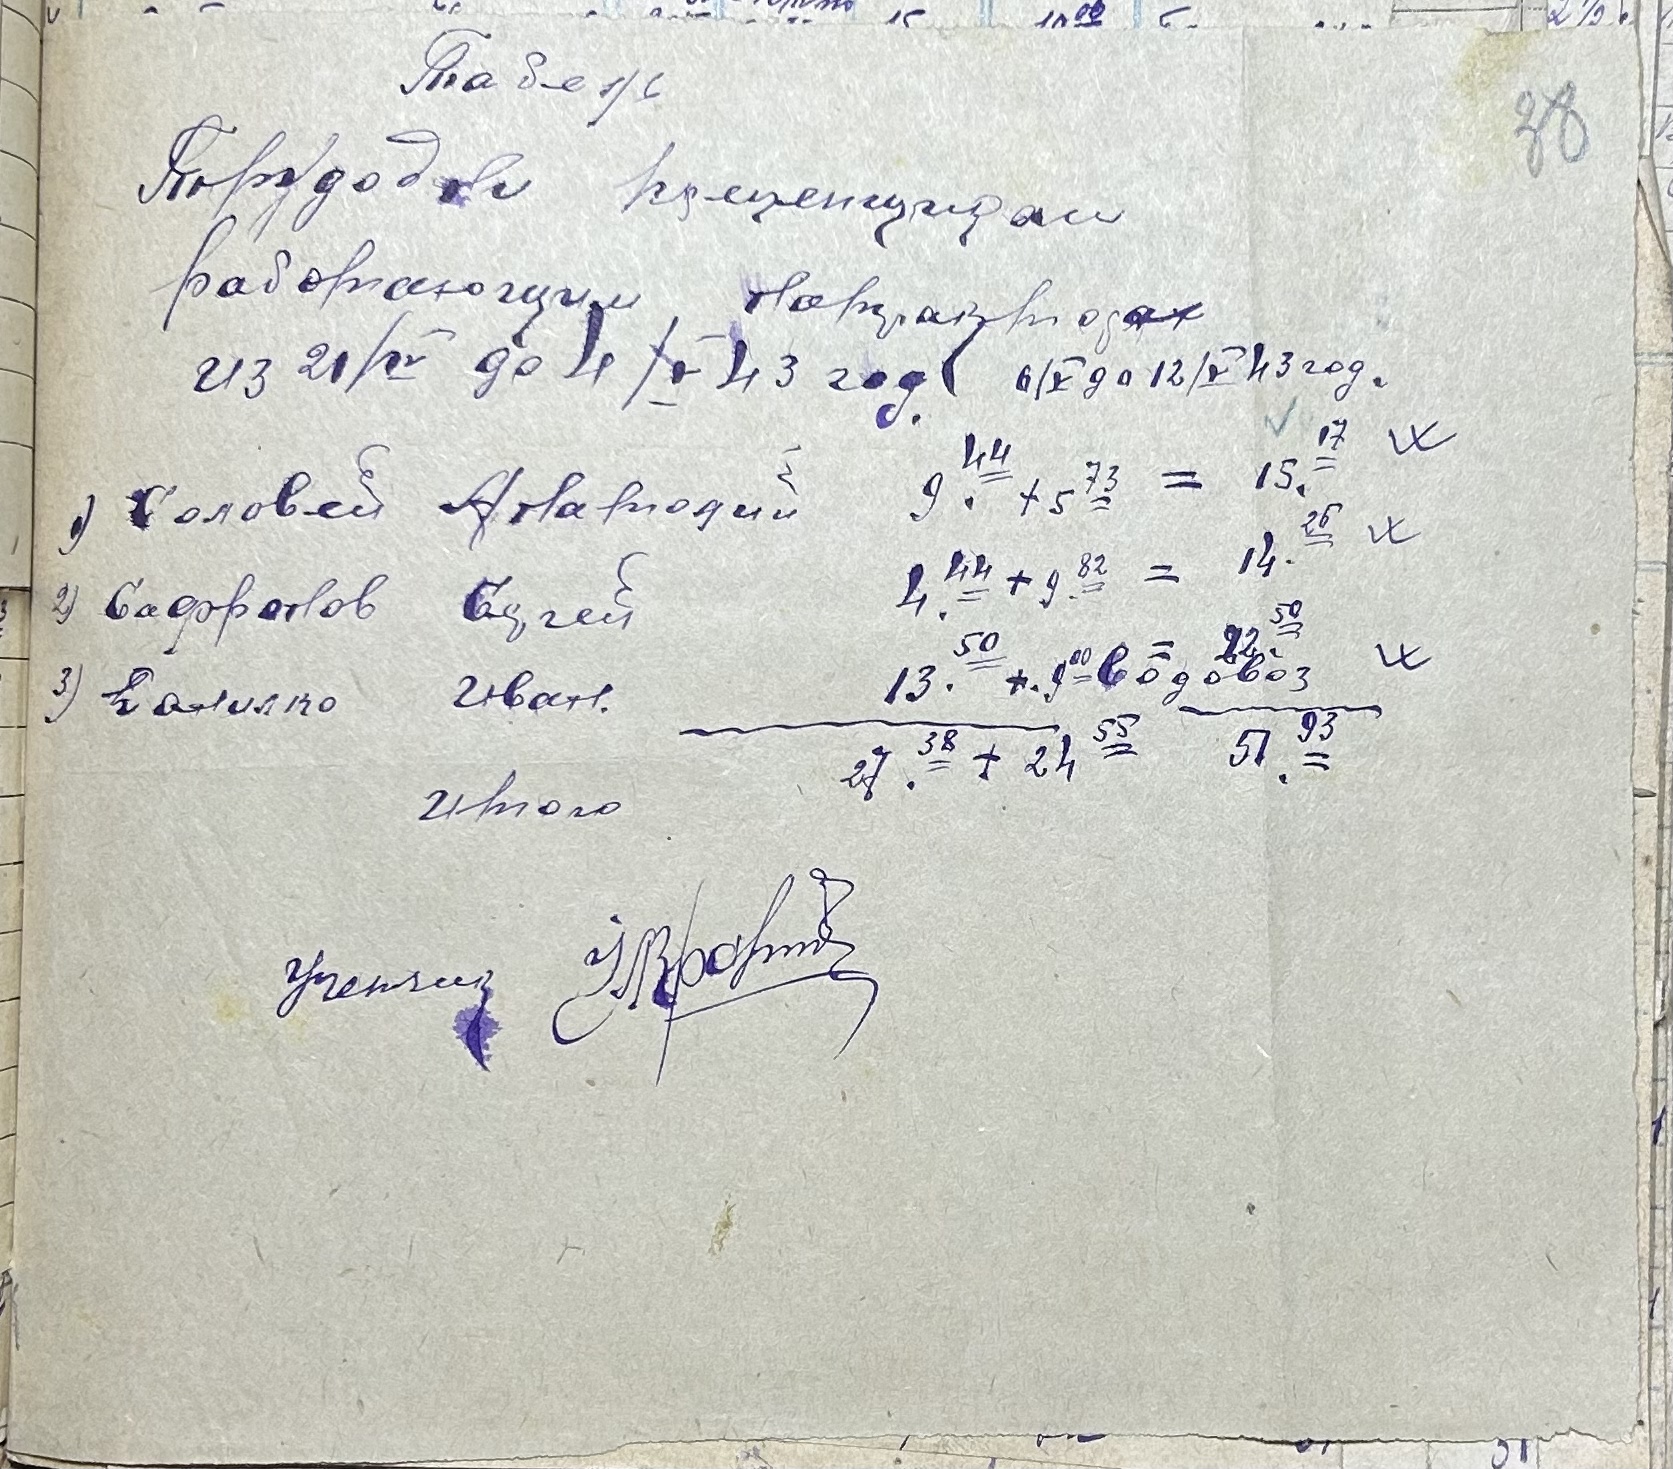 Табель
38
Трудодни прицепщикам
работающим на тракторах
из 21/IV до 4/V 43 год. 6/V до 12/V 43 год.
1) Соловей Анатолий 9.44 + 5 73 = 15.17
2) Сафронов Сергей 4.44 + 9.82 = 14.26
3) Данилко Иван. 13.50 + 9 00 = 22 50 водовоз
27.38 + 24 55 51.93
итого
Учетчик